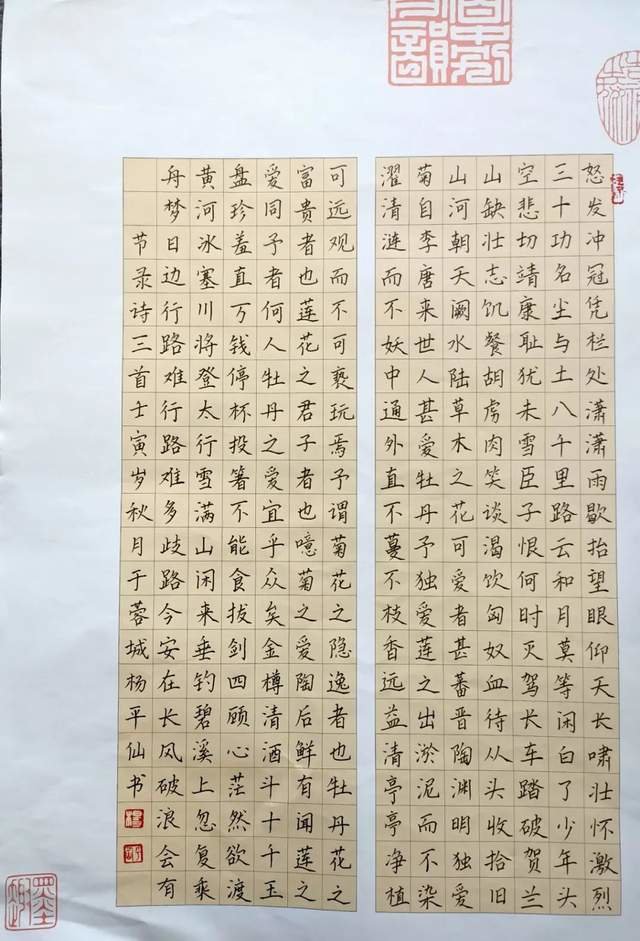 怒发冲冠凭栏处潇潇雨歇抬望眼仰天长啸壮怀激烈
三十功名尘与土八千里路云和月莫等闲白了少年头
空悲切靖康耻犹未雪臣子恨何时灭驾长车踏破贺兰
山缺壮志饥餐胡虏肉笑谈渴饮匈奴血待从头收拾旧
山河朝天阙水陆草木之花可爱者甚蕃晋陶渊明独爱
菊自李唐来世人甚爱牡丹予独爱莲之出淤泥而不染
濯清涟而不妖中通外直不蔓不枝香远益清亭亭净植
可远观而不可亵玩焉予谓菊花之隐逸者也牡丹花之
富贵者也莲花之君子者也噫菊之爱陶后鲜有闻莲之
爱同予者何人牡丹之爱宜乎众矣金樽清酒斗十千王
盘珍羞直万钱停杯投箸不能食拔剑四顾心茫然欲渡
黄河冰塞川将登太行雪满山闲来垂钓碧溪上忽复乘
舟梦日边行路难行路难多歧路今安在长风破浪会有
节录诗三首壬寅岁秋月于蓉城杨平仙书